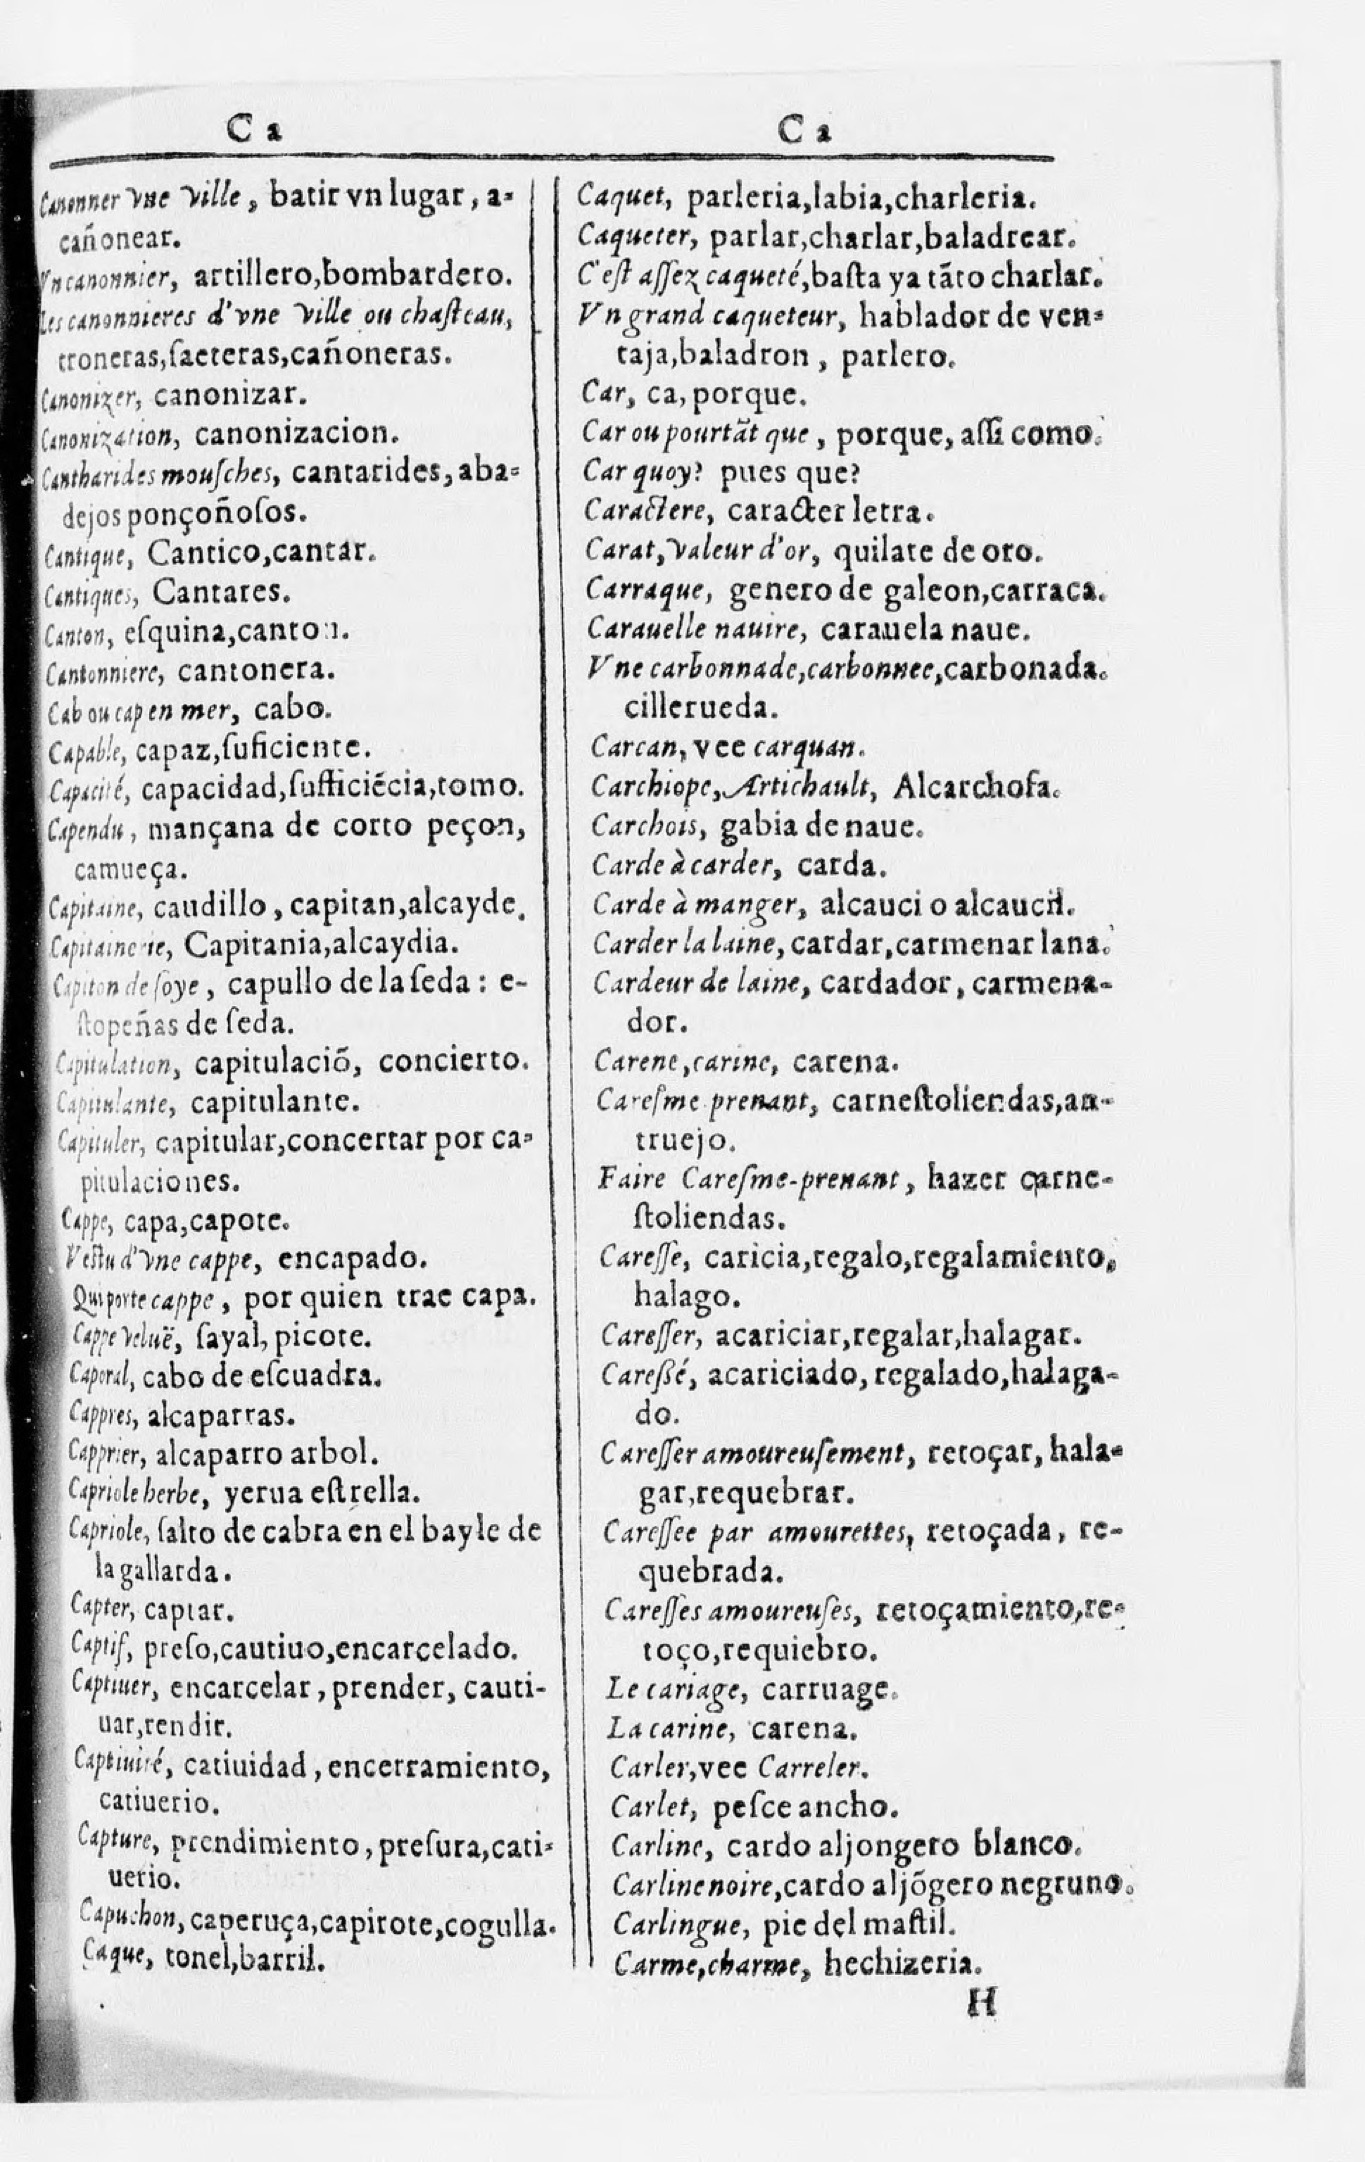 Ca
Canonner vne ville, batir vn lugar, a-
cañonear.
Vn canonnier, artillero, bombardero.
Les canonnieres d'vne ville ou chaſteau,
troneras, ſaeteras, cañoneras.
Canonizer, canonizar.
Canonization, canonizacion.
Cantharides mouſches, cantarides, aba-
dejos ponçoñoſos.
Cantique, Cantico, cantar.
Cantiques, Cantares.
Canton, eſquina, canton.
Cantonniere, cantonera.
Cab ou cap en mer, cabo.
Capable, capaz, ſuficiente.
Capacité, capacidad, ſufficiẽcia, tomo.
Capendu, mançana de corto peçon,
camueça.
Capitaine, caudillo, capitan, alcayde.
Capitainerie, Capitania, alcaydia.
Capiton de ſoye, capullo de la ſeda: e-
ſtopeñas de ſeda.
Capitulation, capitulaciõ, concierto.
Capitulante, capitulante.
Capituler, capitular, concertar por ca-
pitulaciones.
Cappe, capa, capote.
Veſtu d'vne cappe, encapado.
Qui porte cappe, por quien trae capa.
Cappe veluë, ſayal, picote.
Caporal, cabo de eſcuadra.
Cappres, alcaparras.
Capprier, alcaparro arbol.
Capriole herbe, yerua eſtrella.
Capriole, ſalto de cabra en el bayle de
la gallarda.
Capter, captar.
Captif, preſo, cautiuo, encarcelado.
Captiuer, encarcelar, prender, cauti-
uar, rendir.
Captiuité, catiuidad, encerramiento,
catiuerio.
Capture, prendimiento, preſura, cati-
uerio.
Capuchon, caperuça, capirote, cogulla.
Caque, tonel, barril.
Ca
Caquet, parleria, labia, charleria.
Caqueter, parlar, charlar, baladrear.
C'eſt aſſez caqueté, baſta ya tãto charlar.
Vn grand caqueteur, hablador de ven-
taja, baladron, parlero.
Car, ca, porque.
Car ou pourtãt que, porque, aſſi como.
Car quoy? pues que?
Caractere, caracter letra.
Carat, valeur d'or, quilate de oro.
Carraque, genero de galeon, carraca.
Carauelle nauire, carauela naue.
Vne carbonnade, carbonnee, carbonada.
cillerueda.
Carcan, vee carquan.
Carchiope, Artichault, Alcarchofa.
Carchois, gabia de naue.
Carde à carder, carda.
Carde à manger, alcauci o alcaucil.
Carder la laine, cardar, carmenar lana.
Cardeur de laine, cardador, carmena-
dor.
Carene, carine, carena.
Careſme prenant, carneſtoliendas, an-
truejo.
Faire Careſme-prenant, hazer carne-
ſtoliendas.
Careſſe, caricia, regalo, regalamiento,
halago.
Careſſer, acariciar, regalar, halagar.
Careßé, acariciado, regalado, halaga-
do.
Careſſer amoureuſement, retoçar, hala-
gar, requebrar.
Careſſee par amourettes, retoçada, re-
quebrada.
Careſſes amoureuſes, retoçamiento, re-
toço, requiebro.
Le cariage, carruage.
La carine, carena.
Carler, vee Carreler.
Carlet, peſce ancho.
Carline, cardo aljongero blanco.
Carline noire, cardo aljõgero negruno.
Carlingue, pie del maſtil.
Carme, charme, hechizeria.
H